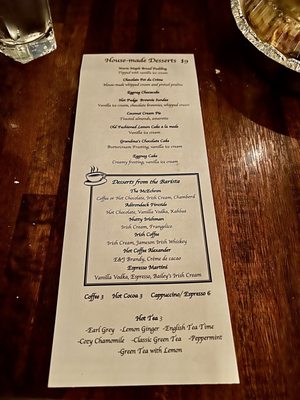 House-made Desserts $9
Warm Maple Bread Pudding
Topped with vanilla ice cream
Chocolate Pot du Crème
House-made whipped cream and petites pralines
Eggnog Cheesecake
Hot Fudge Brownie Sundae
Vanilla ice cream, chocolate brownies, whipped cream
Coconut Cream Pie
Toasted almonds, amaretto
Old Fashioned Lemon Cake a la mode
Vanilla ice cream
Grandma's Chocolate Cake
Buttercream Frosting, vanilla ice cream
Eggnog Cake
Creamy frosting, vanilla ice cream
Desserts from the Barista
The McEchron
Coffee or Hot Chocolate, Irish Cream, Chambord
Adirondack Fireside
Hot Chocolate, Vanilla Vodka, Kahlua
Nutty Irishman
Irish Cream, Frangelico
Irish Coffee
Irish Cream, Jameson Irish Whiskey
Hot Coffee Alexander
E&J Brandy, Crème de cacao
Espresso Martini
Vanilla Vodka, Espresso, Bailey's Irish Cream
Coffee 3 Hot Cocoa 3 Cappuccino/ Espresso 6
Hot Tea 3
-Earl Grey -Lemon Ginger -English Tea Time
-Cozy Chamomile -Classic Green Tea -Peppermint
-Green Tea with Lemon